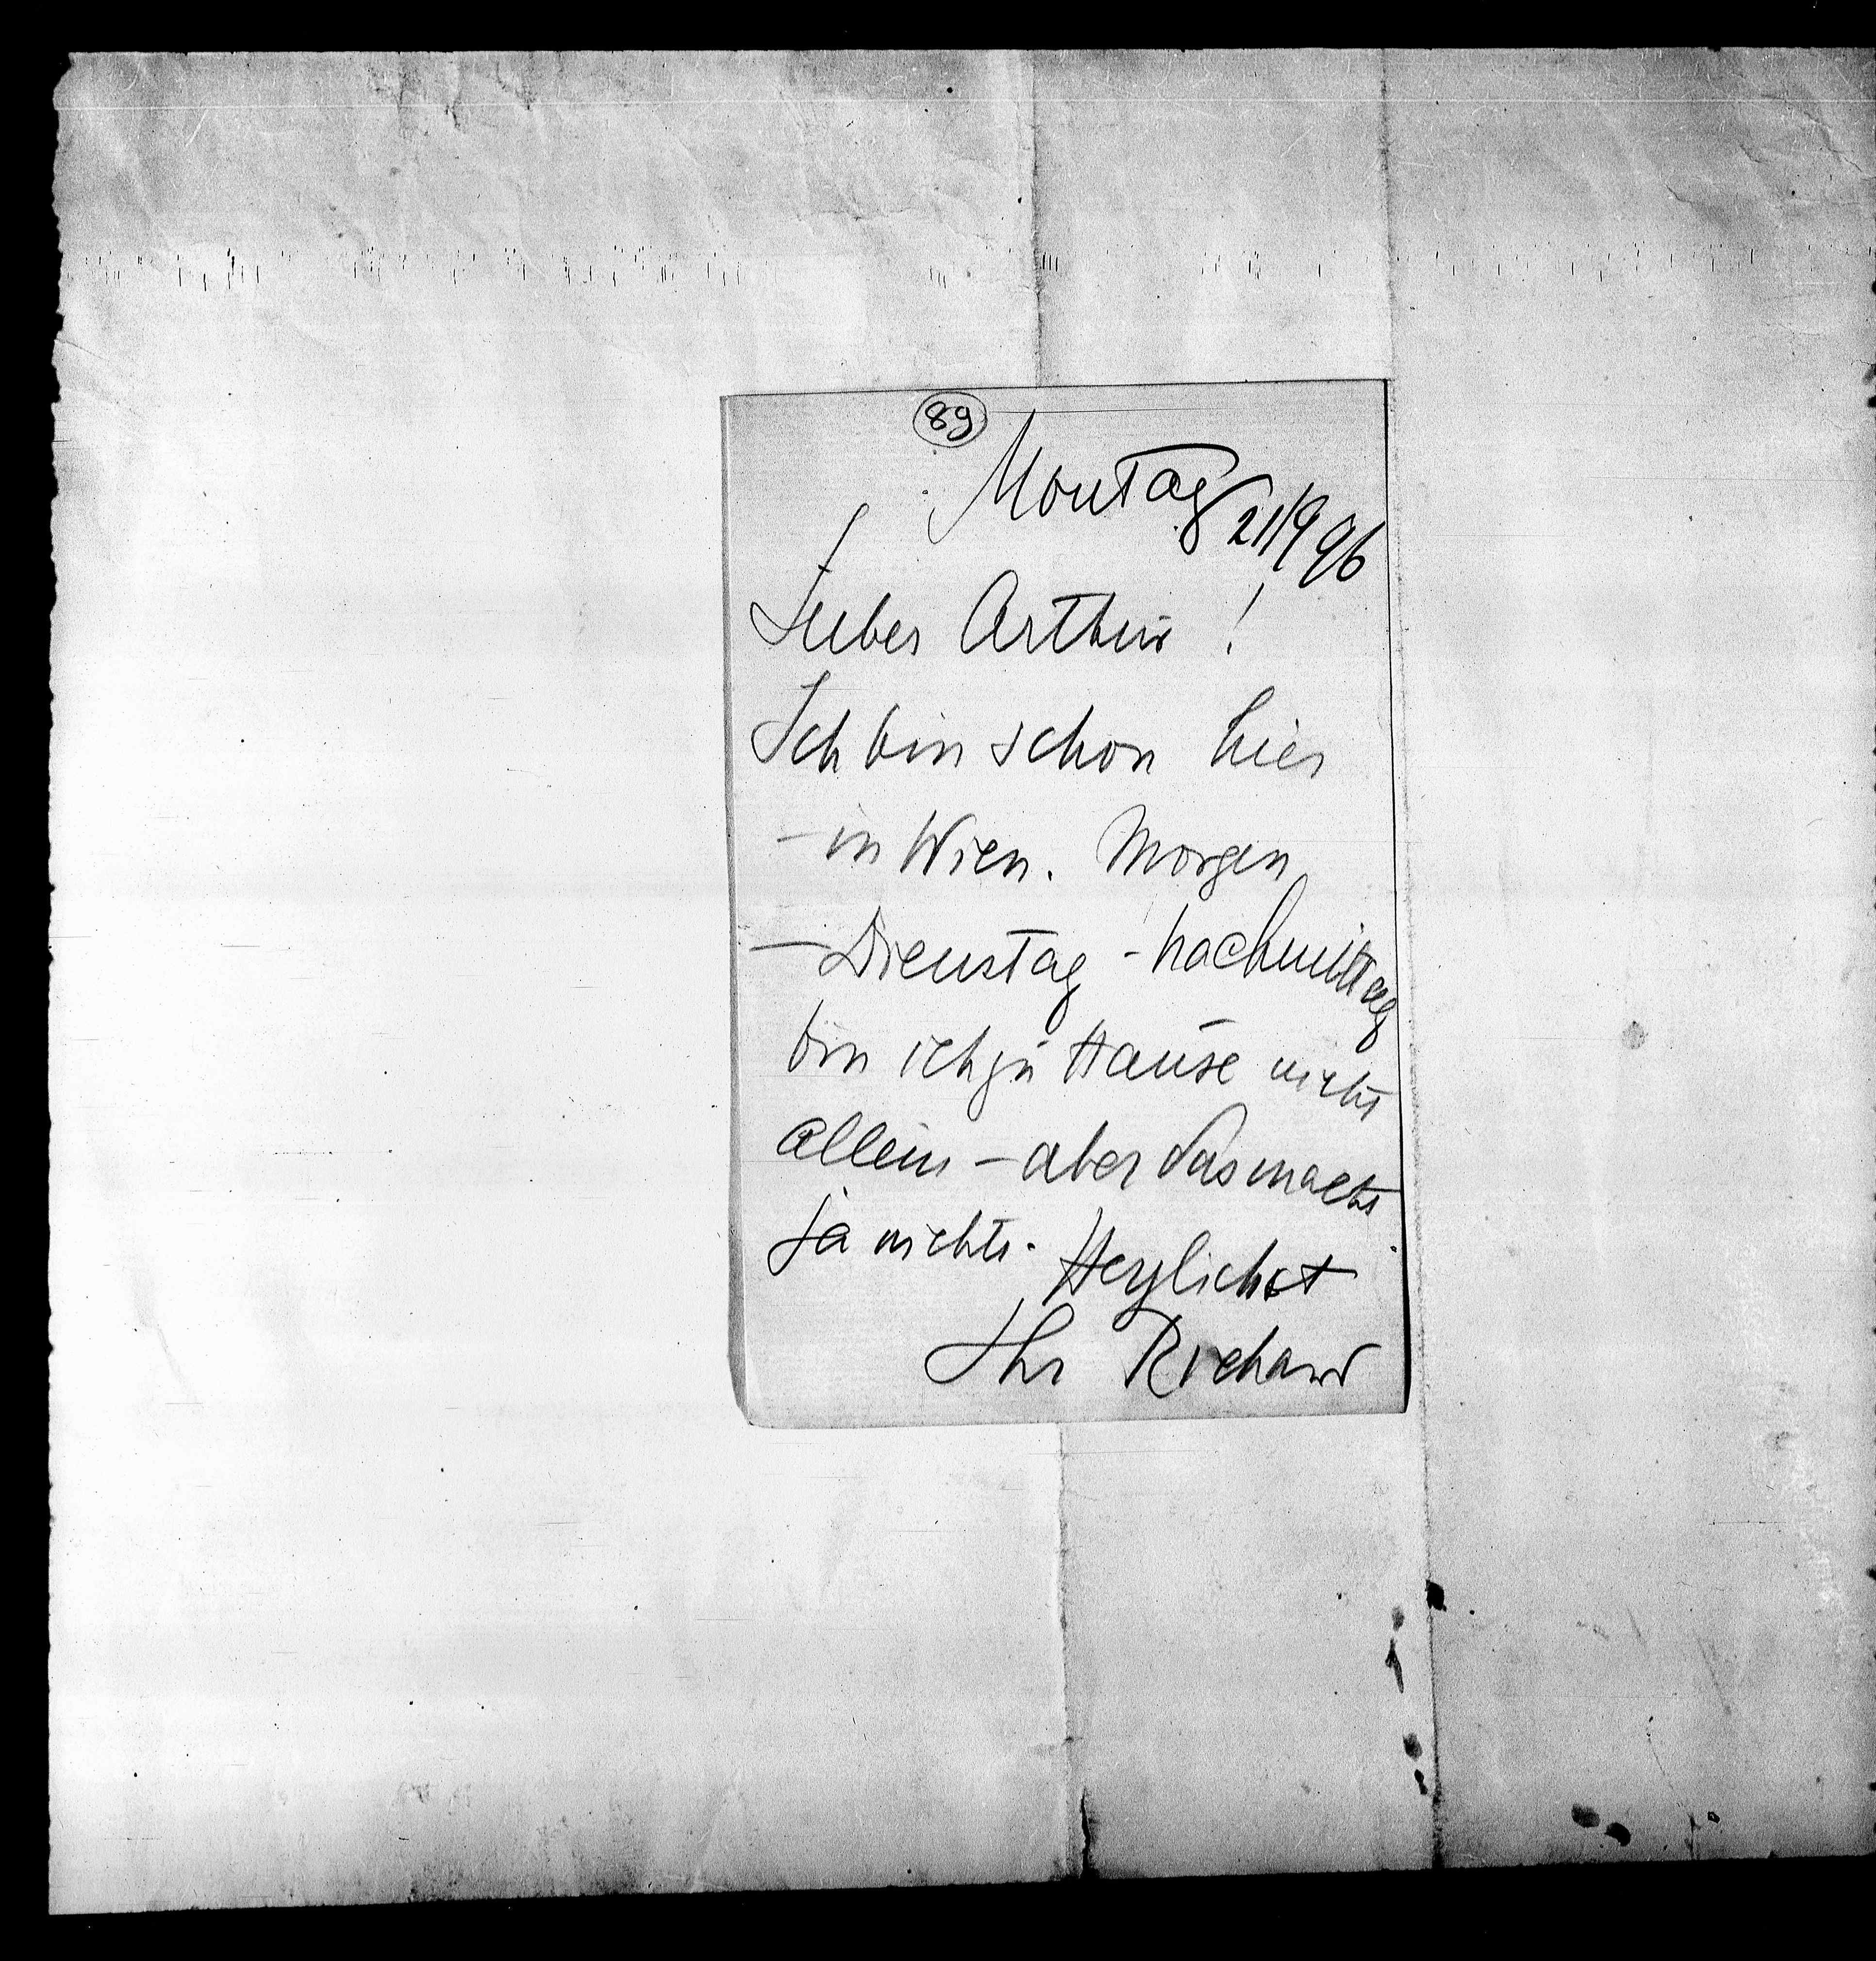 89
Montag 21/9 96
Lieber Arthur!
Ich bin schon hier
– in Wien. Morgen
– Dienstag – nachmittag
bin ich zu Hause nicht
allein – aber das macht
ja nichts. Herzlichst
Ihr Richard